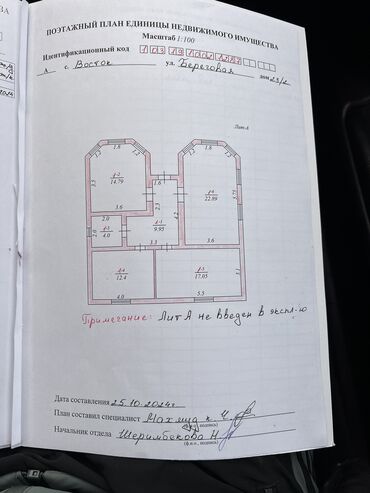 ПОЭТАЖНЫЙ ПЛАН ЕДИНИЦЫ НЕДВИЖИМОГО ИМУЩЕСТВА
Масштаб 1:100
Идентификационный код
А с. Восток ул. Береговая дом 23/2
Лит А
1.2 1.8 1.2
1.2 1.8 1.2
1-2
14.79
3.5
3.6
1.6
1-6
22.89
5.75
4.2
2.3
2.0
2.0
1-3
4.0
1-1
9.95
3.3
3.6
1-4
12.4
1-5
17.05
3.1
4.0
5.5
Примечание: Лит А не введен в экспл-ю
Дата составления 25.10.2024г
План составил специалист
(ф.и.о., подпись)
Начальник отдела Шеримбекова Н.
(ф.и.о., подпись)